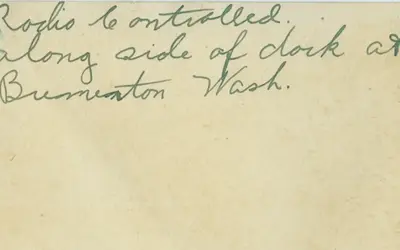 Radio Controlled.
along side of dock at
Bremerton Wash.